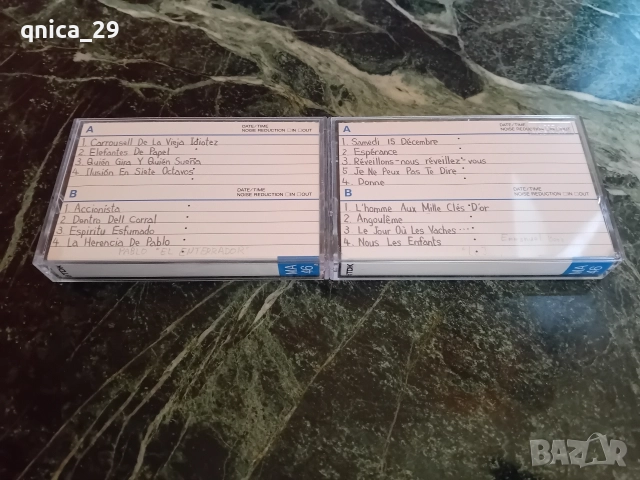 qnica_29
A
DATE/TIME
NOISE REDUCTION □IN □OUT
1 Carrousell De La Vieja Idiotez
2 Elefantes De Papel
3 Quién Gana Y Quién Sueña
4. Ilusión En Siete Octavos
B
DATE/TIME
NOISE REDUCTION □IN □OUT
1 Accionista
2 Dentro Dell Corral
3 Espíritu Esfumado
4 La Herencia De Pablo
PABLO "EL ENTERRADOR"
TDK
MA
46
A
DATE/TIME
NOISE REDUCTION □IN □OUT
1. Samedi 15 Décembre
2 Espérance
3 Réveillons-nous réveillez-vous
5 Je Ne Peux Pas Te Dire
4. Donne
B
DATE/TIME
NOISE REDUCTION □IN □OUT
1 L'homme Aux Mille Clés D'or
2. Angoulême
3 Le Jour Où Les Vaches ...
4 Nous Les Enfants
TDK
MA
46
BAZAR